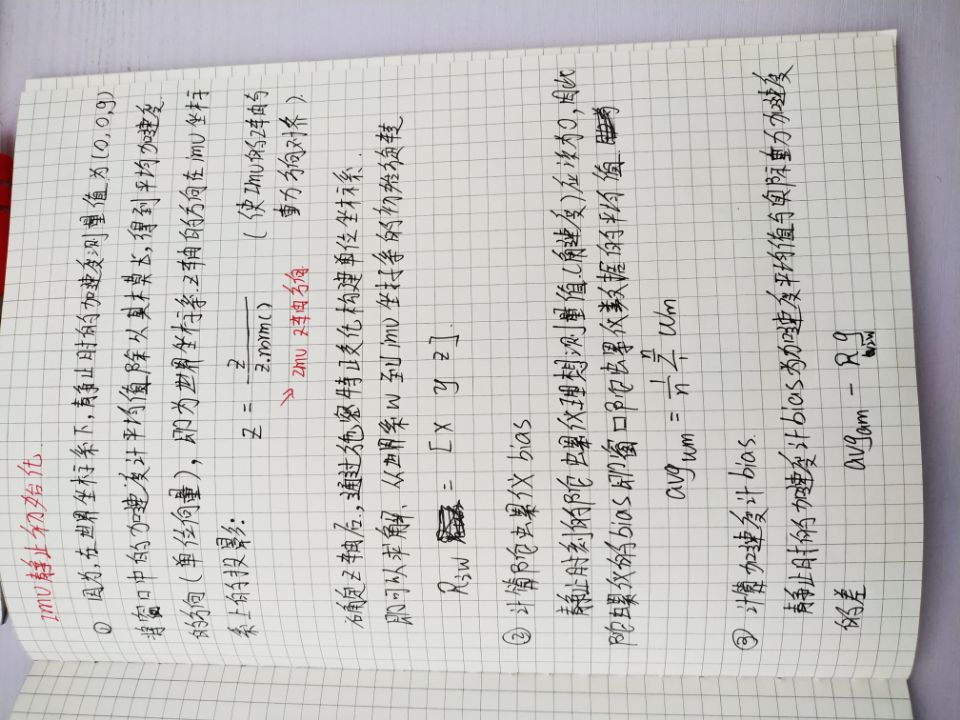 IMU静止初始化
① 因为,在世界坐标系下,静止时的加速度测量值为[0,0,g)
将窗口中的加速度计平均值,除以其模长,得到平均加速度
的方向(单位向量),即为世界坐标系Z轴的方向在imu坐标
系上的投影:
Z = z / z.norm()
(使IMU的Z轴与
重力方向对齐).
IMU Z轴方向
确定Z轴后,通过施密特正交化构建单位坐标系.
即可以求解,从世界系W到imu坐标系的初始旋转
R_IW = [x y z].
② 计算陀螺仪bias
静止时刻的陀螺仪理想测量值(角速度)应该为0,因此
陀螺仪的bias即窗口陀螺仪数据的平均值
avg_wm = 1/n Σ^n Wm
③ 计算加速度计bias.
静止时的加速度计bias为加速度平均值与实际重力加速度
的差
avg_am - R_IW g